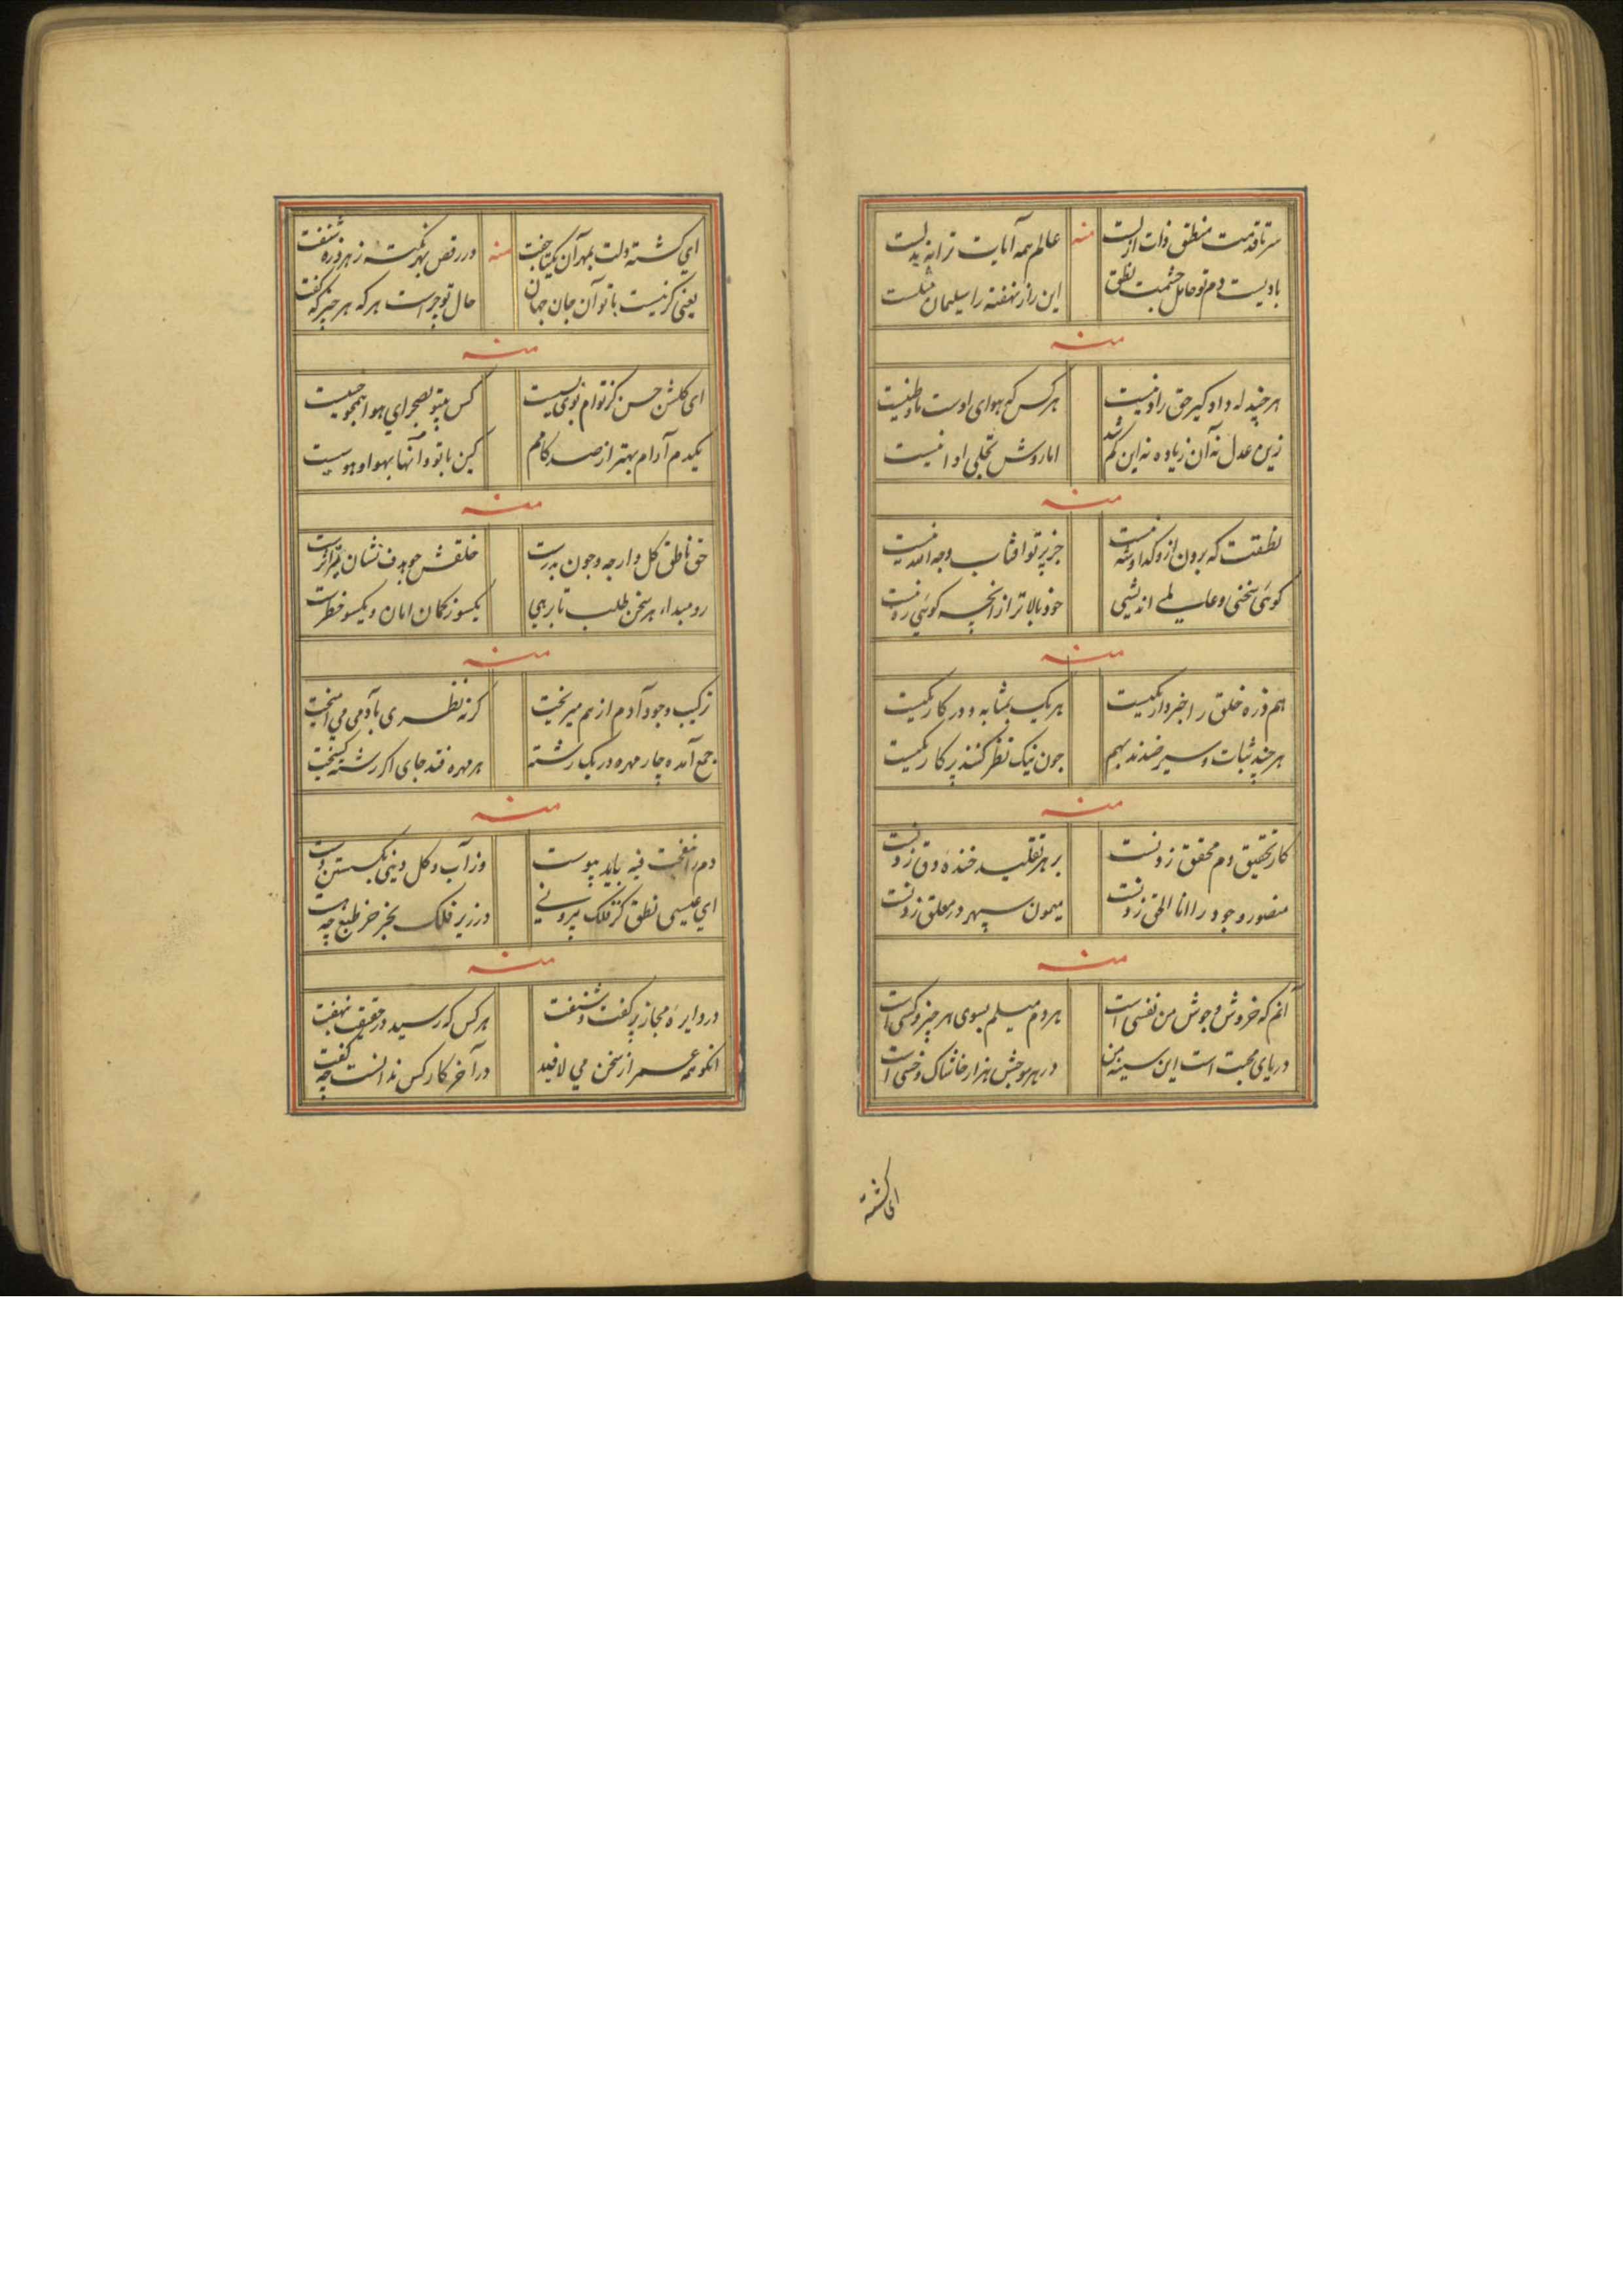 سر تا قدمت منطق ذات ازلست منه عالم همه آیات ترا نه بدلست
بادیست دم تو حامل حشمت نطق این راز نهفته را سلیمان مثلست
منه
هر چند له داد کیر حق را دو نیست هر کس که هوای اوست
زین عدل نه آن زیاده نه این کم شد اما روش تجلی او نیست
منه
نطقت که برون ازو کدا و شه نیست جز پرتو افتاب وجه الله نیست
کوئی سخنی و اندیشی خود بالاتر از انچه کوئی ره نیست
منه
هم ذره خلق را خبردار یکیست هر یک بمثابه و در کار یکیست
هر چند ثبات و سیر ضدند بهم چون نیک نظر کنند پرکار یکیست
منه
کار تحقیق دم محقق زدنست بر هر تقلید خنده دق زدنست
منصور وجود را انا الحق زدنست میمون سپهر در معلق زدنست
منه
آنم که خروش و جوش من نفسی است هر دم میلم بسوی هر چیز و کسی است
دریای محبت است این سینه من در هر موجش هزار خاشاک و خسی است
ای کشته
ای کشته دلت بمهر آن یکتا جفت منه در رقص بهر نکته ز هر ذره شنفت
یعنی کر نیست با تو آن جان جهان حال تو چراست هر که هر چیز که گفت
منه
ای کلشن حسن کز توام بوی بسیست کس بیتو بصحرای هوا همچو خسیست
یکدم آرام بهتر از صد کامم کین با تو و آنها بهوا و هوسیست
منه
حق ناطق کل دار چه و چون بدرست خلقش چو هدف نشان تیر اثرست
رو مبداء هر سخن طلب تا برهی یکسو ز کمان امان و یکسو خطرست
منه
ترکیب وجود آدم از هم میریخت کر نه نظری بآدمی می آمیخت
جمع آمده چار مهره در یک رشته هر مهره فتد جای اکر رشته کسیخت
منه
دم را نفخت فیه باید پیوست وز آب و کل دینی بکسستن دست
ای عیسی نطق کز فلک بیرونی در زیر فلک بجز خر طبع چه هست
منه
در دایره مجاز پر کفت و شنفت هر کس که رسید در حقیقت نهفت
انکو همه عمر از سخن می لافید در آخر کار کس ندانست چه کفت